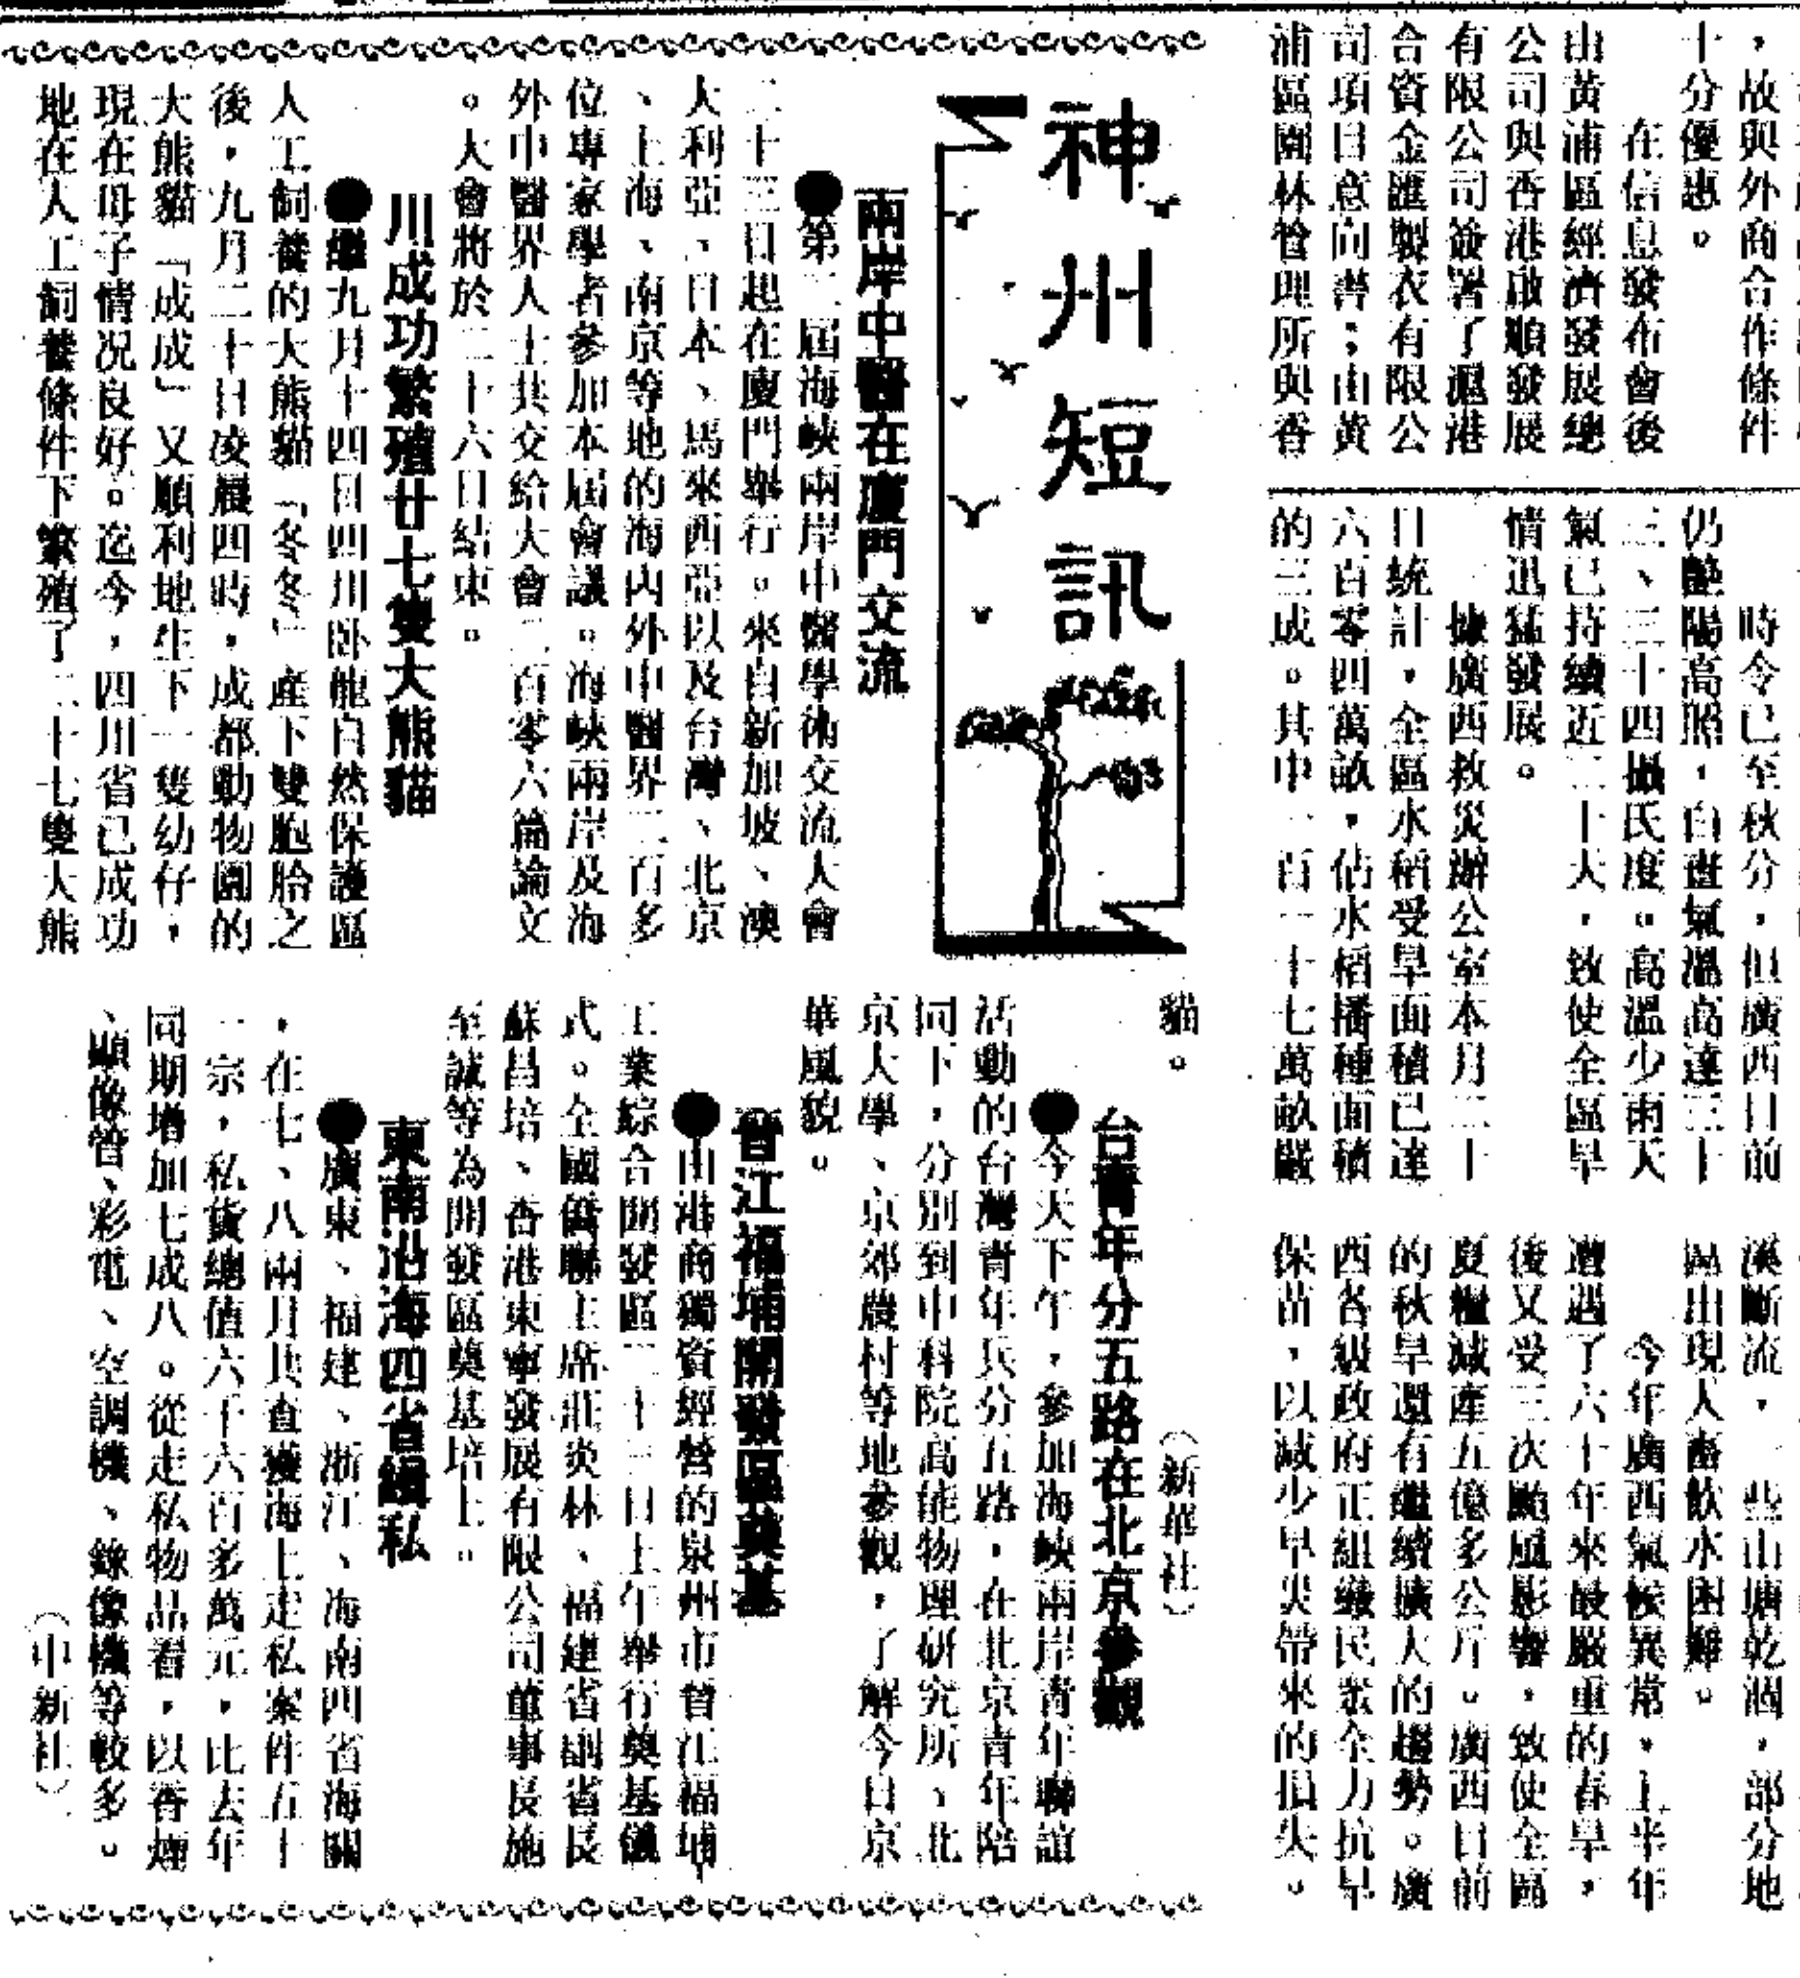 ，故與外商合作條件
十分優惠。
在信息發布會後
山黃浦區經濟發展總
公司與香港啟順發展
有限公司簽署了滬港
合資金匯製衣有限公
司項目意向書；由黃
浦區園林管理所與香
時令已至秋分，但廣西目前
仍艷陽高照，白晝氣溫高達三十
三、三十四攝氏度。高溫少雨天
氣已持續近二十天，致使全區旱
情迅猛發展。
據廣西救災辦公室本月二十
日統計，全區水稻受旱面積已達
六百零四萬畝，佔水稻播種面積
的三成。其中一百一十七萬畝嚴
溪斷流，一些山塘乾涸，部分地
區出現人畜飲水困難。
今年廣西氣候異常，上半年
遭遇了六十年來最嚴重的春旱，
後又受三次颱風影響，致使全區
夏糧減產五億多公斤。廣西目前
的秋旱還有繼續擴大的趨勢。廣
西各級政府正組織民眾全力抗旱
保苗，以減少旱災帶來的損失。
神州短訊
兩岸中醫在廈門交流
●第二屆海峽兩岸中醫學術交流大會
二十三日起在廈門舉行。來自新加坡、澳
大利亞、日本、馬來西亞以及台灣、北京
、上海、南京等地的海內外中醫界二百多
位專家學者參加本屆會議。海峽兩岸及海
外中醫界人士共交給大會二百零六篇論文
。大會將於二十六日結束。
川成功繁殖廿七隻大熊貓
●繼九月十四日四川卧龍自然保護區
人工飼養的大熊貓「冬冬」產下雙胞胎之
後，九月二十日凌晨四時，成都動物園的
大熊貓「成成」又順利地生下一隻幼仔，
現在母子情況良好。迄今，四川省已成功
地在人工飼養條件下繁殖了二十七隻大熊
貓。
（新華社）
台青年分五路在北京參觀
●今天下午，參加海峽兩岸青年聯誼
活動的台灣青年兵分五路，在北京青年陪
同下，分別到中科院高能物理研究所、北
京大學、京郊農村等地參觀，了解今日京
華風貌。
晉江福埔開發區奠基
●由港商獨資經營的泉州市晉江福埔
工業綜合開發區二十三日上午舉行奠基儀
式。全國僑聯主席莊炎林、福建省副省長
蘇昌培、香港東寧發展有限公司董事長施
至誠等為開發區奠基培土。
東南沿海四省緝私
●廣東、福建、浙江、海南四省海關
，在七、八兩月共查獲海上走私案件五十
一宗，私貨總值六千六百多萬元，比去年
同期增加七成八。從走私物品看，以香煙
、顯像管、彩電、空調機、錄像機等較多。
（中新社）